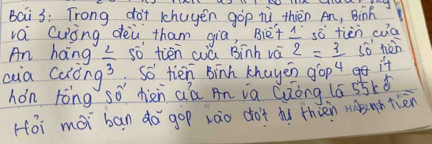 Bài 3: Trong đợt khuyên góp từ thiện An, Bình
và Cường đều tham gia, Biết 1 số tiền của
An hằng 2 số tiền của Bình và 2 = 3 số tiền
của Cường 3. Số tiền Bình khuyên góp 4 ít
hơn tổng số tiền của An và Cường là 55k
Hỏi mỗi bạn đã góp vào đợt từ thiện tiền